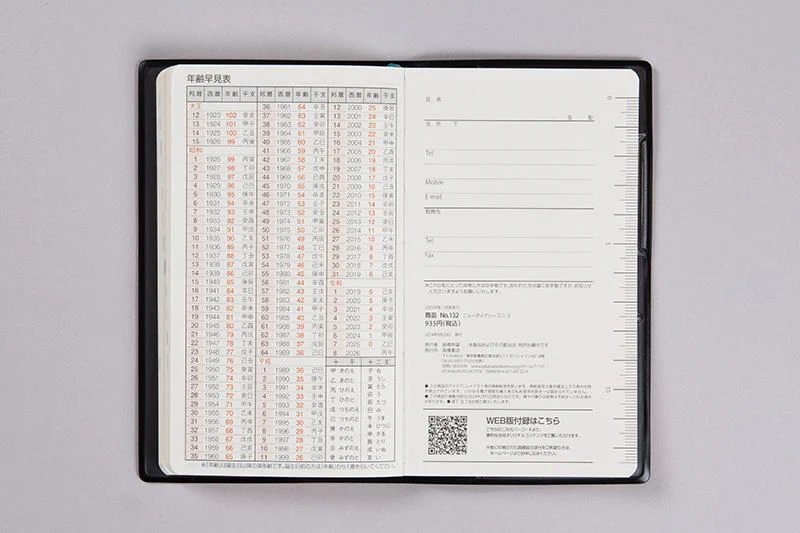 年齢早見表
邦暦 西暦 年齢 干支
大正
12 1923 102 癸亥
13 1924 101 甲子
14 1925 100 乙丑
15 1926 99 丙寅
昭和
1 1926 99 丙寅
2 1927 98 丁卯
3 1928 97 戊辰
4 1929 96 己巳
5 1930 95 庚午
6 1931 94 辛未
7 1932 93 壬申
8 1933 92 癸酉
9 1934 91 甲戌
10 1935 90 乙亥
11 1936 89 丙子
12 1937 88 丁丑
13 1938 87 戊寅
14 1939 86 己卯
15 1940 85 庚辰
16 1941 84 辛巳
17 1942 83 壬午
18 1943 82 癸未
19 1944 81 甲申
20 1945 80 乙酉
21 1946 79 丙戌
22 1947 78 丁亥
23 1948 77 戊子
24 1949 76 己丑
25 1950 75 庚寅
26 1951 74 辛卯
27 1952 73 壬辰
28 1953 72 癸巳
29 1954 71 甲午
30 1955 70 乙未
31 1956 69 丙申
32 1957 68 丁酉
33 1958 67 戊戌
34 1959 66 己亥
35 1960 65 庚子
邦暦 西暦 年齢 干支
36 1961 64 辛丑
37 1962 63 壬寅
38 1963 62 癸卯
39 1964 61 甲辰
40 1965 60 乙巳
41 1966 59 丙午
42 1967 58 丁未
43 1968 57 戊申
44 1969 56 己酉
45 1970 55 庚戌
46 1971 54 辛亥
47 1972 53 壬子
48 1973 52 癸丑
49 1974 51 甲寅
50 1975 50 乙卯
51 1976 49 丙辰
52 1977 48 丁巳
53 1978 47 戊午
54 1979 46 己未
55 1980 45 庚申
56 1981 44 辛酉
57 1982 43 壬戌
58 1983 42 癸亥
59 1984 41 甲子
60 1985 40 乙丑
61 1986 39 丙寅
62 1987 38 丁卯
63 1988 37 戊辰
64 1989 36 己巳
平成
1 1989 36 己巳
2 1990 35 庚午
3 1991 34 辛未
4 1992 33 壬申
5 1993 32 癸酉
6 1994 31 甲戌
7 1995 30 乙亥
8 1996 29 丙子
9 1997 28 丁丑
10 1998 27 戊寅
11 1999 26 己卯
邦暦 西暦 年齢 干支
12 2000 25 庚辰
13 2001 24 辛巳
14 2002 23 壬午
15 2003 22 癸未
16 2004 21 甲申
17 2005 20 乙酉
18 2006 19 丙戌
19 2007 18 丁亥
20 2008 17 戊子
21 2009 16 己丑
22 2010 15 庚寅
23 2011 14 辛卯
24 2012 13 壬辰
25 2013 12 癸巳
26 2014 11 甲午
27 2015 10 乙未
28 2016 9 丙申
29 2017 8 丁酉
30 2018 7 戊戌
31 2019 6 己亥
令和
1 2019 6 己亥
2 2020 5 庚子
3 2021 4 辛丑
4 2022 3 壬寅
5 2023 2 癸卯
6 2024 1 甲辰
7 2025 0 乙巳
8 2026 丙午
十干 十二支
甲 きのえ 子 ね
乙 きのと 丑 うし
丙 ひのえ 寅 とら
丁 ひのと 卯 う
戊 つちのえ 辰 たつ
己 つちのと 巳 み
庚 かのえ 午 うま
辛 かのと 未 ひつじ
壬 みずのえ 申 さる
癸 みずのと 酉 とり
戌 いぬ
亥 い
※「年齢」は誕生日以降の満年齢です。誕生日前の方は「年齢」から1歳を引いてください。
氏名
年 型
住所 〒
Tel
Mobile
E-mail
勤務先
Tel
Fax
商品 No.132 ニューダイアリー ミニ 3
935円(税込)
WEB版付録はこちら
こちらの二次元バーコードより、
便利な当社オリジナルコンテンツをご覧いただけます。
ホームページよりお申し込みください。
0
5
10